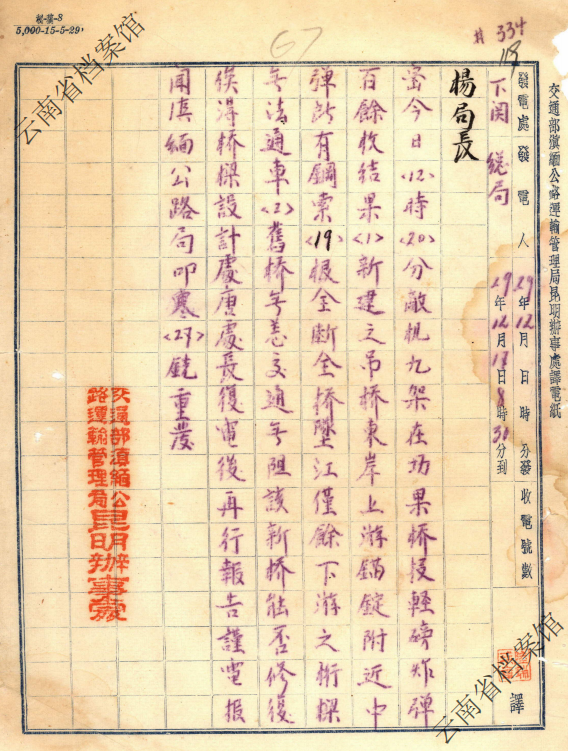 枧-萤-8
5,000-15-5-29.
67
# 334
交通部滇緬公路運輸管理局昆明辦事處譯電紙
發電處 發電人 29年12月 日 時 分發 收電號數
下関 総局 29年12月17日8時30分到
楊局長
密今日<12>時<20>分敵机九架在功果橋投輕磅炸弹
百餘收結果<1>新建之吊橋東岸上游錨錠附近中
弹所有鋼索<19>根全断全桥墜江僅餘下游之桁樑
無法通車<2>舊桥無恙交通無阻該新桥能否修復
俟得桥樑設計處唐處長復電後再行報告謹電报
聞滇緬公路局叩寒<27>饒重慶
譯
交通部滇緬公
路運輸管理局昆明辦事處
云南省档案馆
云南省档案馆